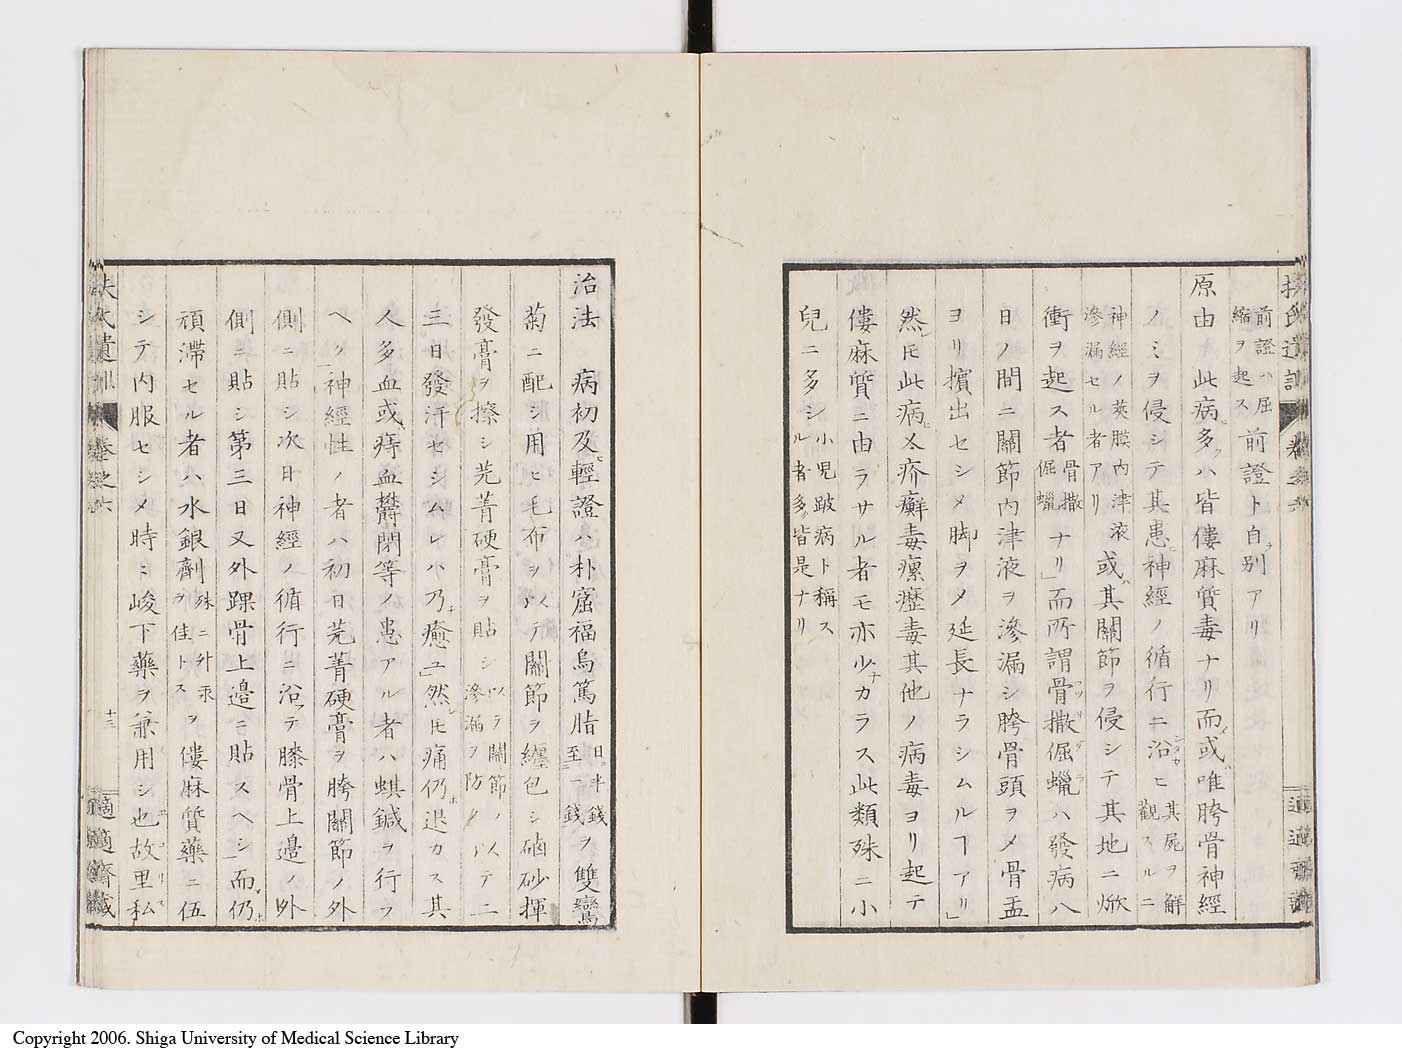 扶氏遺訓
卷之六
適適齋藏
前證ハ屈
縮ヲ起ス
前證ト自ラ別アリ
原由 此病多クハ皆僂麻質毒ナリ而メ或ハ唯胯骨神經
ノミヲ侵シテ其患ヒ神經ノ循行ニ沿ヒ
其屍ヲ解
觀スルニ
神經ノ莢膜内津液
滲漏セル者アリ
或ハ其關節ヲ侵シテ其地ニ焮
衝ヲ起ス者
骨撒
倔蠟
ナリ」而所謂骨撒倔蠟ハ發病八
日ノ間ニ關節内津液ヲ滲漏シ胯骨頭ヲメ骨盂
ヨリ擯出セシメ脚ヲメ延長ナラシムルヿアリ」
然レ𪜈此病又疥癬毒瘰癧毒其他ノ病毒ヨリ起テ
僂麻質ニ由ラサル者モ亦少ナカラス此類殊ニ小
兒ニ多シ
小児跛病ト稱ス
ル者多クハ皆是ナリ
治法 病初及ヒ輕證ハ朴窟福烏篤脂
日半錢
至一錢
ヲ雙鸞
菊ニ配シ用ヒ毛布ヲ以テ關節ヲ纏包シ硇砂揮
發膏ヲ擦シ芫菁硬膏ヲ貼シ
以テ關節ノ
滲漏ヲ防ク
以テ二
三日發汗セシムレハ乃チ癒ユ」然レ𪜈痛仍ホ退カス其
人多血或ハ痔血欝閉等ノ患アル者ハ蜞鍼ヲ行フ
ヘク神經性ノ者ハ初日芫菁硬膏ヲ胯關節ノ外
側ニ貼シ次日神經ノ循行ニ沿テ膝骨上邊ノ外
側ニ貼シ第三日又外踝骨上邊ニ貼スヘシ」而メ仍ホ
頑滯セル者ハ水銀劑
殊ニ升汞
ヲ佳トス
ヲ僂麻質藥ニ伍
シテ内服セシメ時ニ峻下藥ヲ兼用シ也故里私
扶氏遺訓
卷之六
十三
適適齋藏
Copyright 2006. Shiga University of Medical Science Library